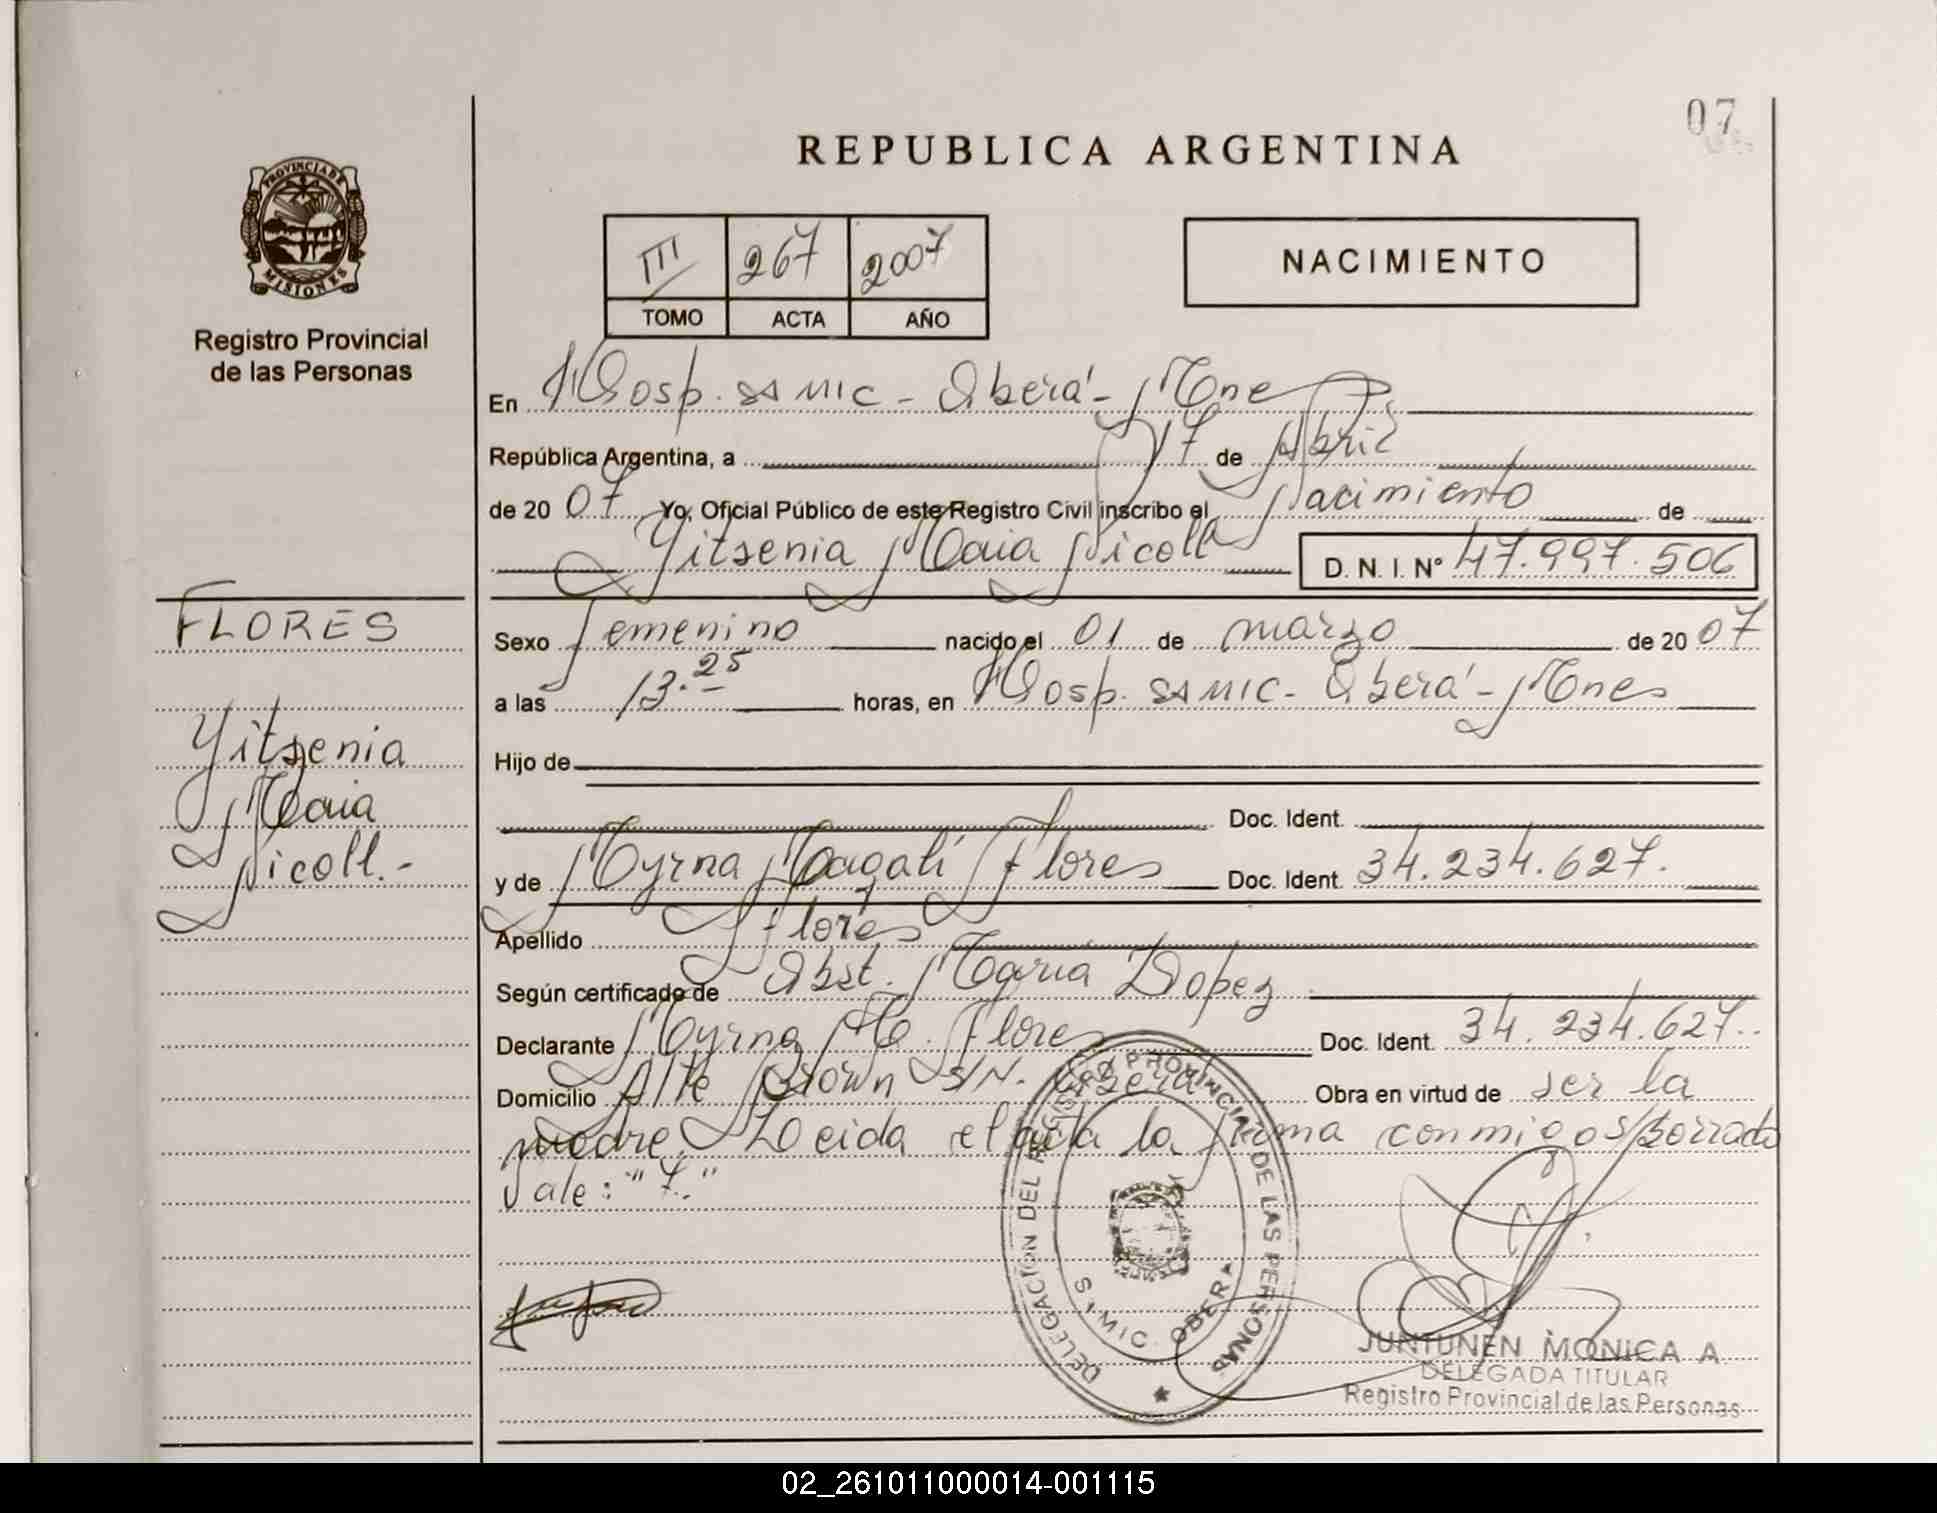 07
REPUBLICA ARGENTINA
PROVINCIA DE
MISIONES
Registro Provincial
de las Personas
III 267 2007
TOMO ACTA AÑO
NACIMIENTO
En Hosp. SAMIC - Oberá - Mnes
República Argentina, a 17 de Abril
de 2007 Yo, Oficial Público de este Registro Civil inscribo el Nacimiento de
Yitsenia Maia Nicoll D. N. I. Nº 47.997.506
FLORES
Yitsenia
Maia
Nicoll.-
Sexo femenino nacido el 01 de marzo de 2007
a las 13.25 horas, en Hosp. SAMIC - Oberá - Mnes
Hijo de
Doc. Ident.
y de Myrna Magalí Flores Doc. Ident. 34.234.627.
Apellido Flores
Según certificado de Obst. María Lopez
Declarante Myrna M. Flores Doc. Ident. 34.234.627.
Domicilio Alte Brown S/N. Oberá Obra en virtud de ser la
madre. Leida el acta la firma conmigo s/borrado
Vale: "7."
DELEGACIÓN DEL REGISTRO PROVINCIAL DE LAS PERSONAS
S.A.MIC. OBERA
JUNTUNEN MONICA A.
DELEGADA TITULAR
Registro Provincial de las Personas
02_261011000014-001115